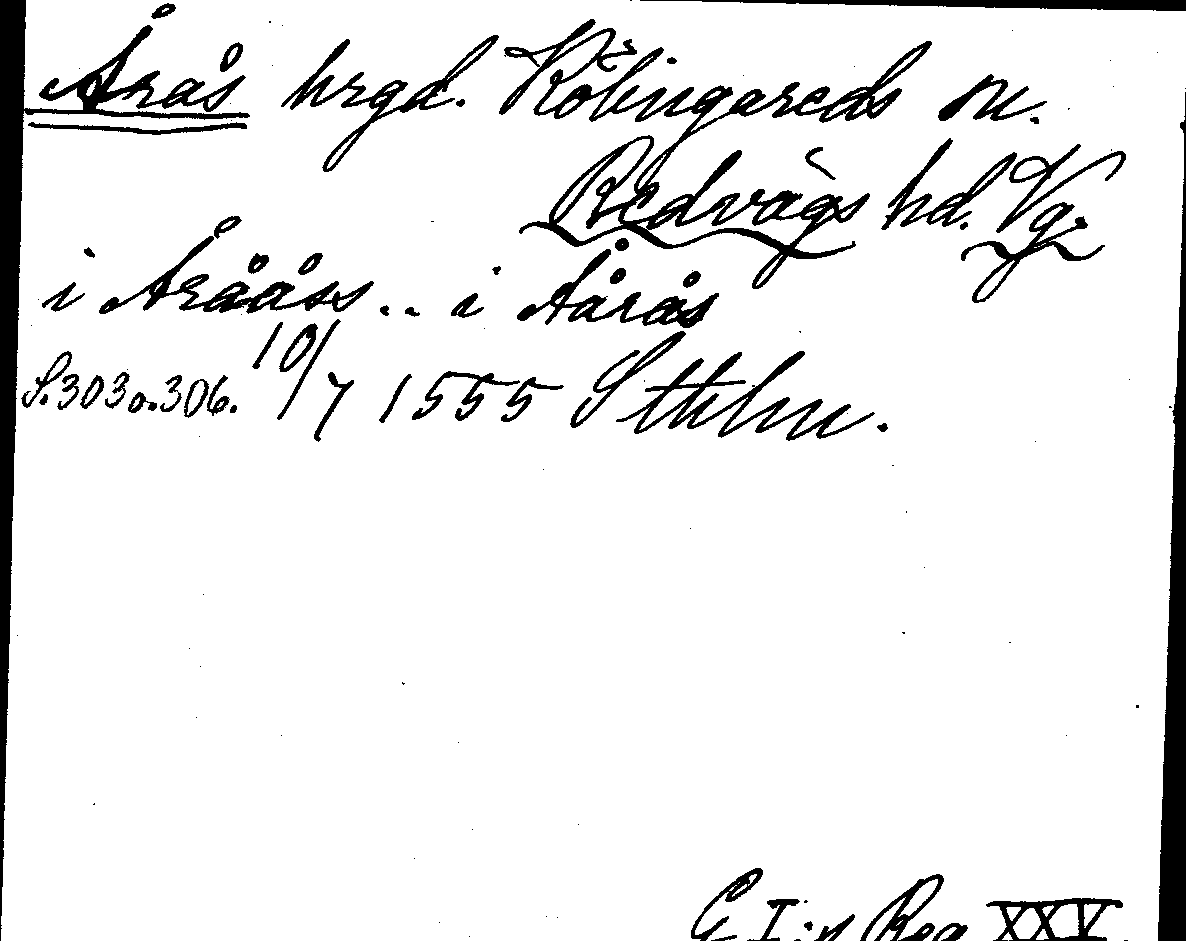 Årås hrgd. Kölingareds sn.
Redvägs hd. Vg.
i Årååss.. i Åårås
S. 303 o. 306. 10/7 1555 Sthlm.
G I:s Reg XXV.